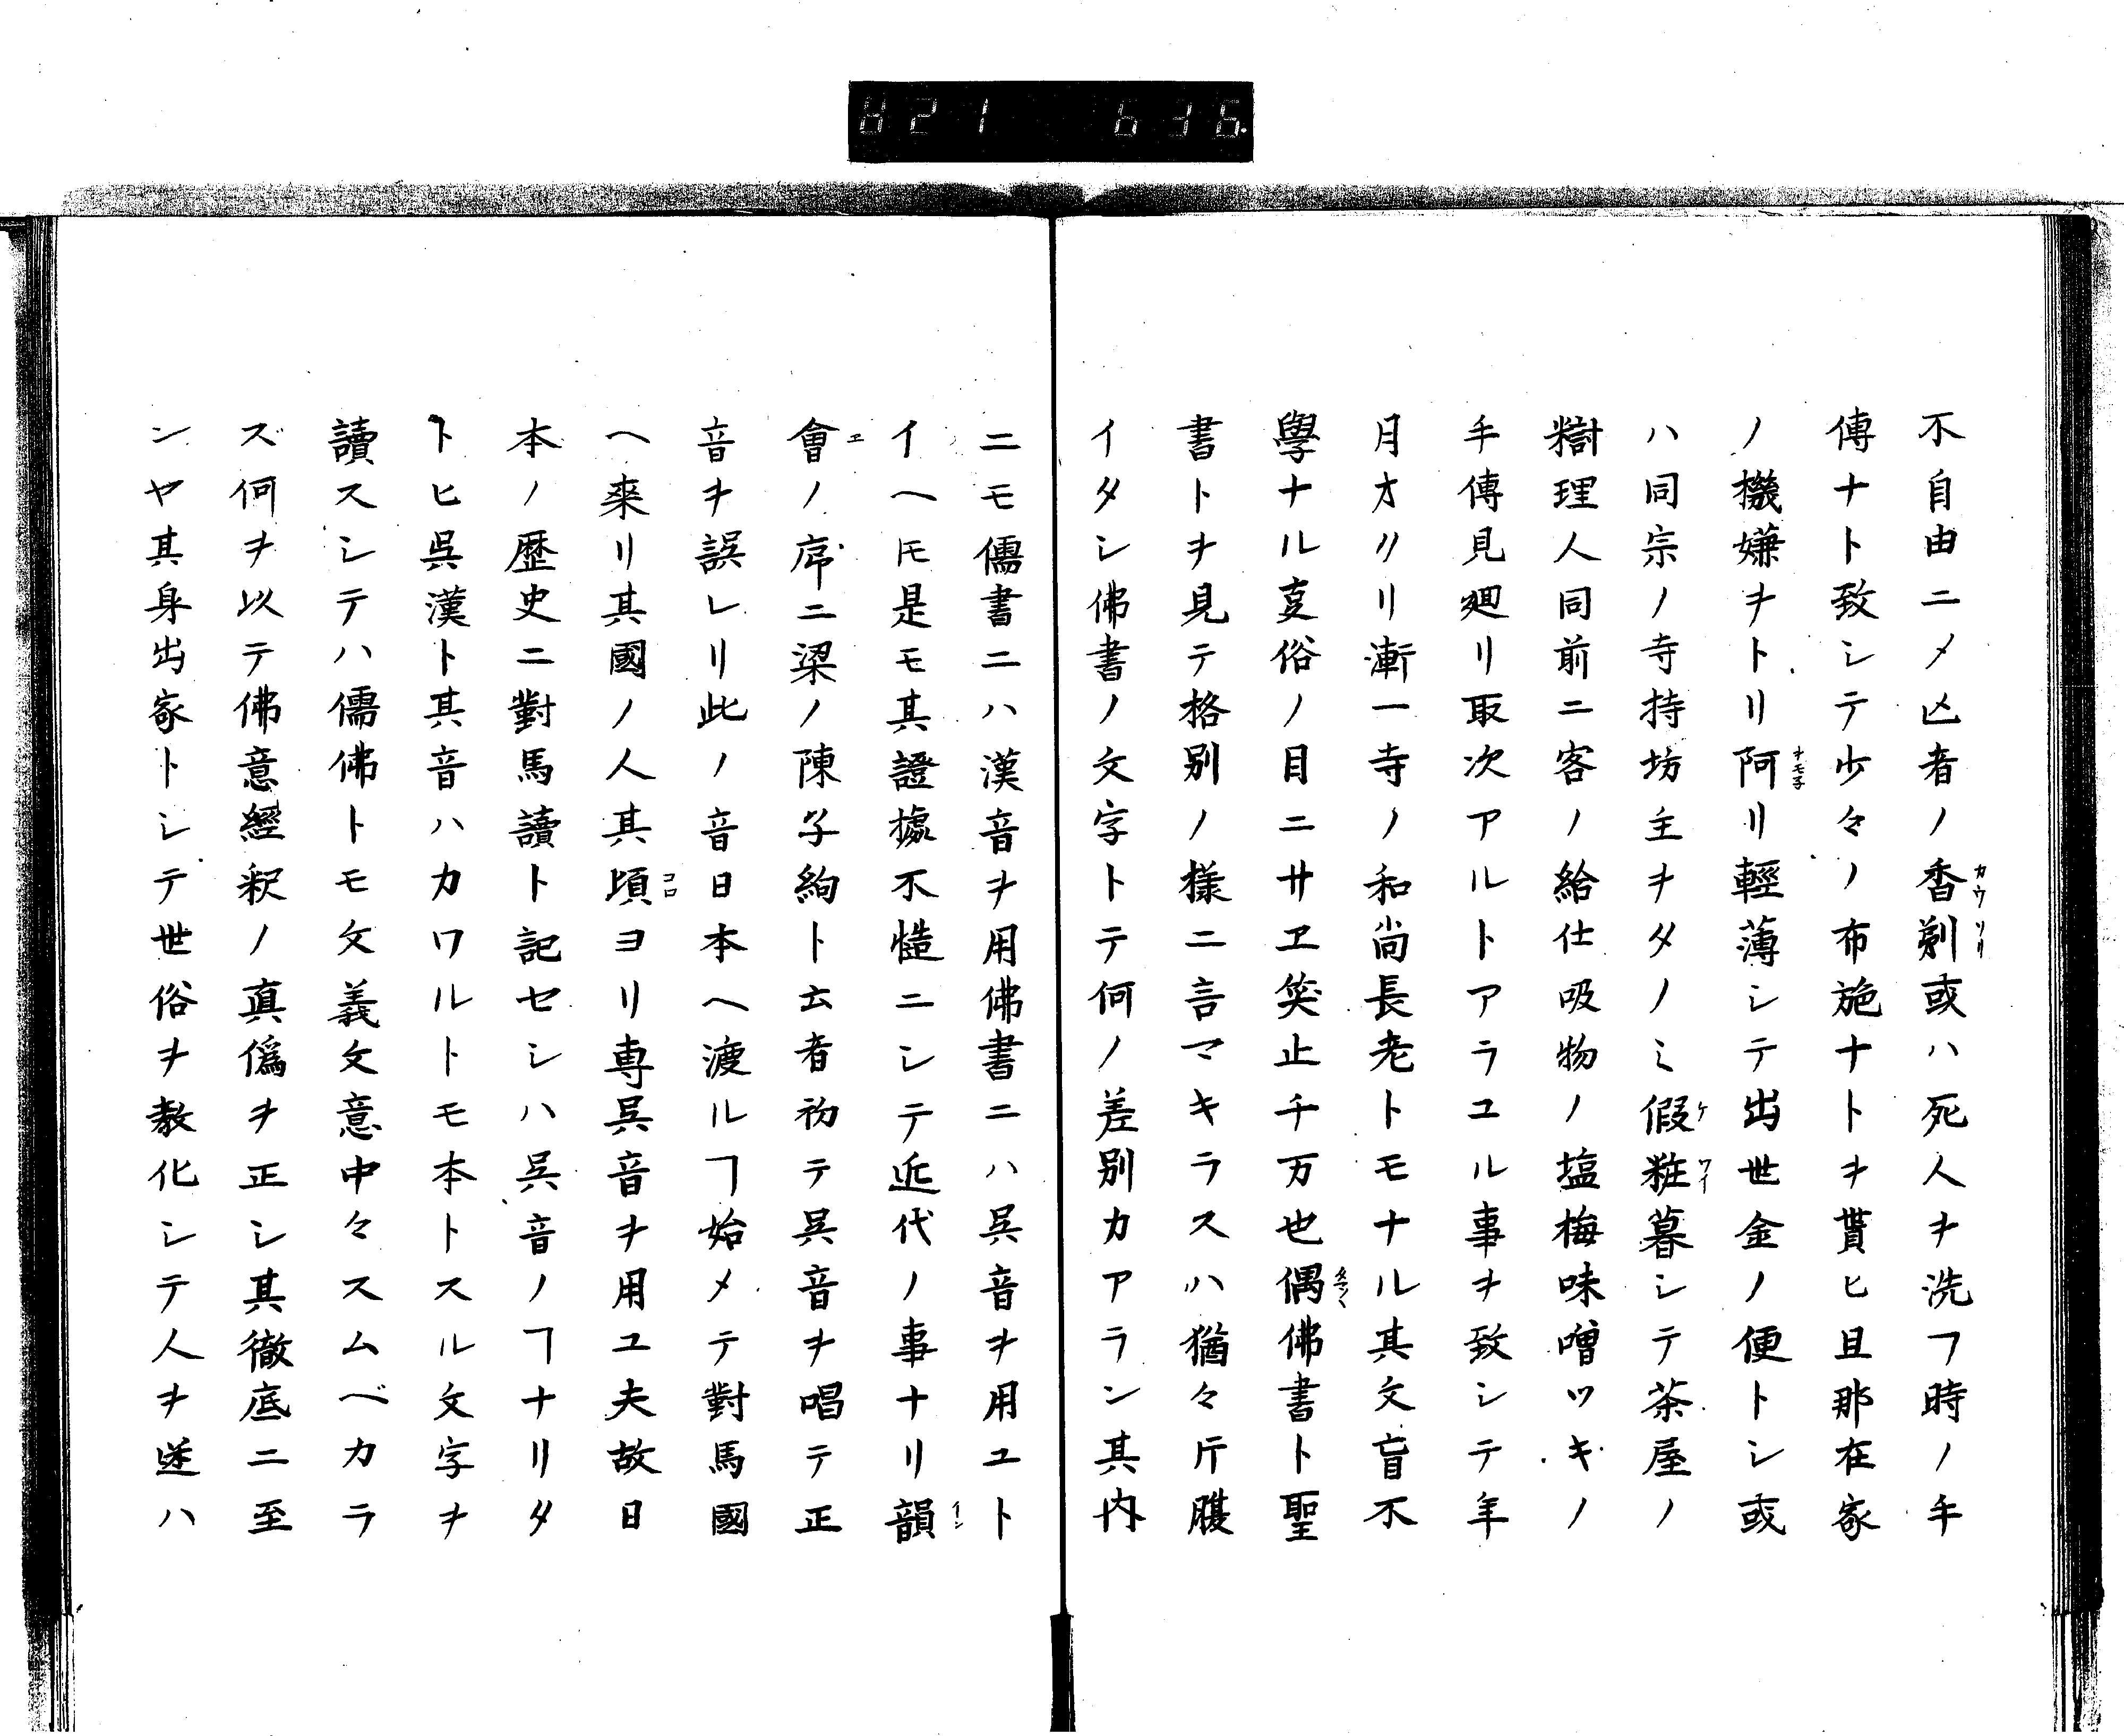 821 636.
不自由ニメ亡者ノ香剃或ハ死人ヲ洗フ時ノ手
傳ナト致シテ少々ノ布施ナトヲ貰ヒ旦那在家
ノ機嫌ヲトリ阿リ輕薄シテ出世金ノ便トシ或
ハ同宗ノ寺持坊主ヲタノミ假粧暮シテ茶屋ノ
理人同前ニ客ノ給仕吸物ノ塩梅味噌ツキノ
手傳見廻リ取次アルトアラユル事ヲ致シテ年
月オクリ漸一寺ノ和尚長老トモナル其文盲不
學ナル㕝俗ノ目ニサヱ笑止千万也偶佛書ト聖
書トヲ見テ格別ノ樣ニ言マキラスハ猶々片腹
イタシ佛書ノ文字トテ何ノ差別カアラン其内
ニモ儒書ニハ漢音ヲ用佛書ニハ呉音ヲ用ユト
イヘ𪜈是モ其證據不慥ニシテ近代ノ事ナリ韻
會ノ席ニ梁ノ陳子絢ト云者初テ呉音ヲ唱テ正
音ヲ誤レリ此ノ音日本ヘ渡ルヿ始メテ對馬國
ヘ來リ其國ノ人其頃ヨリ専呉音ヲ用ユ夫故日
本ノ歴史ニ對馬讀ト記セシハ呉音ノヿナリタ
トヒ呉漢ト其音ハカワルトモ本トスル文字ヲ
讀スシテハ儒佛トモ文義文意中々スムベカラ
ズ何ヲ以テ佛意經釈ノ真僞ヲ正シ其徹底ニ至
ンヤ其身出家トシテ世俗ヲ教化シテ人ヲ迷ハ